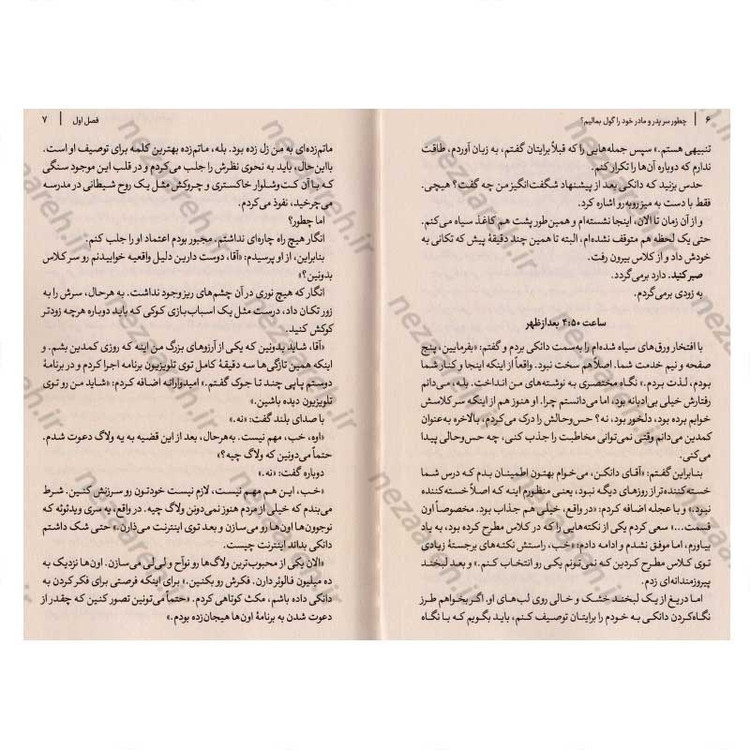 ۶ | چطور سر پدر و مادر خود را گول بمالیم؟
تنبیهی هستم.» سپس جمله‌هایی را که قبلاً برایتان گفتم، به زبان آوردم، طاقت
ندارم که دوباره آن‌ها را تکرار کنم.
حدس بزنید که دانکی بعد از پیشنهاد شگفت‌انگیز من چه گفت؟ هیچی.
فقط با دست به میز روبه‌رو اشاره کرد.
و از آن زمان تا الان، اینجا نشسته‌ام و همین‌طور پشت هم کاغذ سیاه می‌کنم.
حتی یک لحظه هم متوقف نشده‌ام، البته تا همین چند دقیقهٔ پیش که تکانی به
خودش داد و از کلاس بیرون رفت.
صبر کنید. دارد برمی‌گردد.
به زودی برمی‌گردم.
ساعت ۴:۵۰ بعدازظهر
با افتخار ورق‌های سیاه شده‌ام را به‌سمت دانکی بردم و گفتم: «بفرمایین، پنج
صفحه و نیم خدمت شما. اصلاً هم سخت نبود. واقعاً از اینکه اینجا و کنار شما
بودم، لذت بردم.» نگاه مختصری به نوشته‌های من انداخت. بله، می‌دانم
رفتارش خیلی بی‌ادبانه بود، اما می‌دانستم چرا. او هنوز هم از اینکه سر کلاسش
خوابم برده بود، دلخور بود، نه؟ حس‌وحالش را درک می‌کردم، بالاخره به‌عنوان
کمدین می‌دانم وقتی نمی‌توانی مخاطبت را جذب کنی، چه حس‌وحالی پیدا
می‌کنی.
بنابراین گفتم: «آقای دانکن، می‌خوام بهتون اطمینان بدم که درس شما
خسته‌کننده‌تر از روزهای دیگه نبود، یعنی منظورم اینه که اصلاً خسته‌کننده
نبود.» و با عجله اضافه کردم: «در واقع، خیلی هم جذاب بود. مخصوصاً اون
قسمت...» سعی کردم یکی از نکته‌هایی را که در کلاس مطرح کرده بود، به یاد
بیاورم، اما موفق نشدم و ادامه دادم: «خب، راستش نکته‌های برجستهٔ زیادی
توی کلاس مطرح کردین که نمی‌تونم یکی رو انتخاب کنم.» و بعد لبخند
پیروزمندانه‌ای زدم.
اما دریغ از یک لبخند خشک و خالی روی لب‌های او. اگر بخواهم طرز
نگاه‌کردن دانکی به خودم را برایتان توصیف کنم، باید بگویم که با نگاه
فصل اول | ۷
ماتم‌زده‌ای به من زل زده بود. بله، ماتم‌زده بهترین کلمه برای توصیف او است.
بااین‌حال، باید به نحوی نظرش را جلب می‌کردم و در قلب این موجود سنگی
که با آن کت‌وشلوار خاکستری و چروکش مثل یک روح شیطانی در مدرسه
می‌چرخید، نفوذ می‌کردم.
اما چطور؟
انگار هیچ راه چاره‌ای نداشتم. مجبور بودم اعتماد او را جلب کنم.
بنابراین، از او پرسیدم: «آقا، دوست دارین دلیل واقعیه خوابیدنم رو سر کلاس
بدونین؟»
انگار که هیچ نوری در آن چشم‌های ریز وجود نداشت. به هرحال، سرش را به
زور تکان داد، درست مثل یک اسباب‌بازی کوکی که باید دوباره هرچه زودتر
کوکش کنید.
«آقا، شاید بدونین که یکی از آرزوهای بزرگ من اینه که روزی کمدین بشم. و
اینکه همین تازگی‌ها سه دقیقهٔ کامل توی تلویزیون برنامه اجرا کردم و در برنامهٔ
دوستم پاپی چند تا جوک گفتم.» امیدوارانه اضافه کردم: «شاید من رو توی
تلویزیون دیده باشین.»
با صدای بلند گفت: «نه.»
«اوه، خب، مهم نیست. به‌هرحال، بعد از این قضیه به یه ولاگ دعوت شدم.
حتماً می‌دونین که ولاگ چیه؟»
دوباره گفت: «نه.»
«خب، این هم مهم نیست، لازم نیست خودتون رو سرزنش کنین. شرط
می‌بندم که خیلی از مردم هنوز نمی‌دونن ولاگ چیه. در واقع، یه سری ویدئوئه که
نوجوون‌ها اون‌ها رو می‌سازن و بعد توی اینترنت می‌ذارن.» حتی شک داشتم
دانکی بداند اینترنت چیست.
«الان یکی از محبوب‌ترین ولاگ‌ها رو نوآح و لی‌لی می‌سازن. اون‌ها نزدیک به
ده میلیون فالوئر دارن. فکرش رو بکنین.» برای اینکه فرصتی برای فکر کردن به
دانکی داده باشم، مکث کوتاهی کردم. «حتماً می‌تونین تصور کنین که چقدر از
دعوت شدن به برنامهٔ اون‌ها هیجان‌زده بودم.»
nezaareh.ir